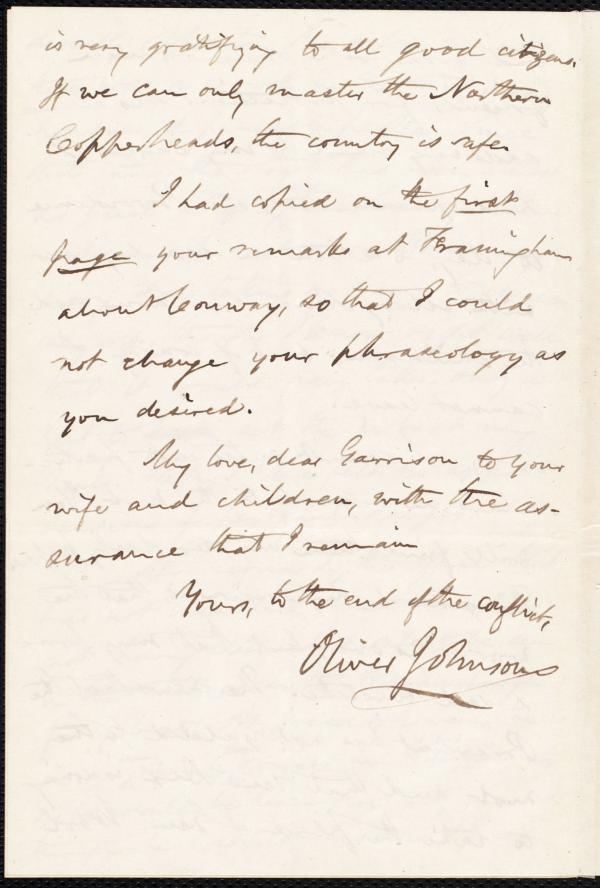 is very gratifying to all good citizens.
If we can only master the Northern
Copperheads, the country is safe.
I had copied on the first
page your remarks at Framingham
about Conway, so that I could
not change your phraseology as
you desired.
My love, dear Garrison to your
wife and children, with the as-
surance that I remain
Yours, to the end of the conflict,
Oliver Johnson